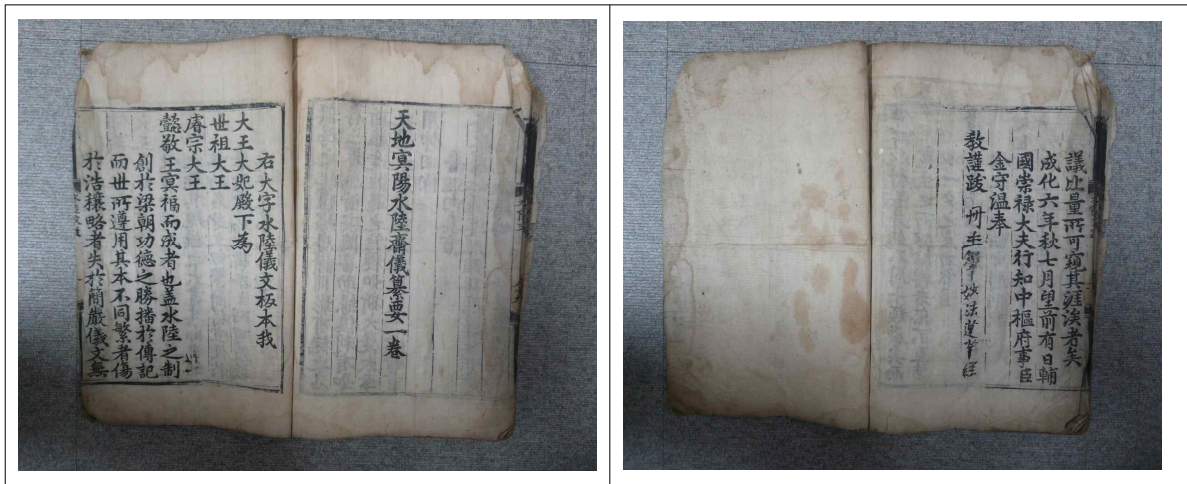 天地冥陽水陸齋儀纂要一卷
右大字水陸儀文板本我
大王大妃殿下為
世祖大王
睿宗大王
懿敬王冥福而成者也盖水陸之制
創於梁朝功德之勝播於傳記
而世所遵用其本不同繁者傷
於浩穰略者失於簡嚴儀文無
議比量所可窺其涯涘者矣
成化六年秋七月望前有日輔
國崇祿大夫行知中樞府事臣
金守温奉
教謹跋 冊主 妙法蓮華經